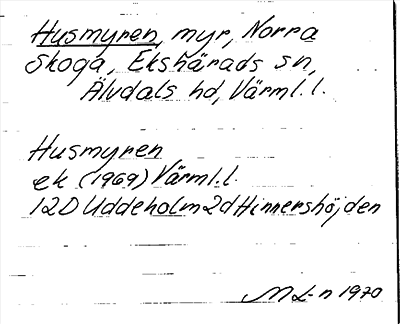 Husmyren, myr, Norra
Skoga, Ekshärads sn,
Älvdals hd, Värml. l.
Husmyren
ek (1969) Värml. l.
12D Uddeholm 2d Hinnershöjden
M L-n 1970